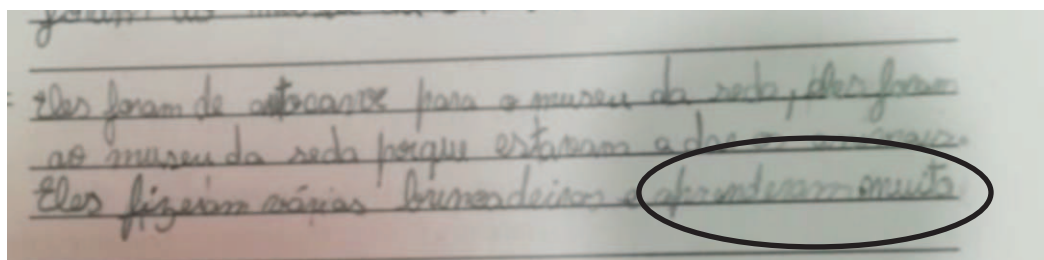 foram ao museu
eles foram de autocarro para o museu da seda, eles foram
ao museu da seda porque estavam a dar os animais.
Eles fizeram várias brincadeiras e aprenderam muito